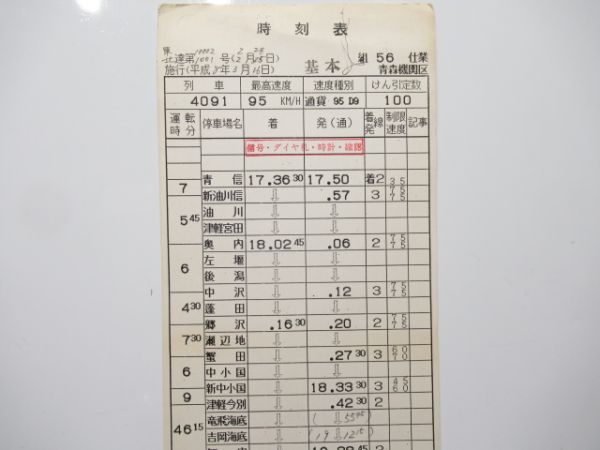 時刻表
東 10002 2 28
北達第1001号(2月15日) 組 56 仕業
施行(平成8年3月16日) 基本 青森機関区
列車 最高速度 速度種別 けん引定数
4091 95 KM/H 通貨 95 D9 100
運転時分 停車場名 着 発(通) 着発線 制限速度 記事
番号・ダイヤ札・時計・確認
青信 17.36 30 17.50 着2 35 75
7 新油川信 ⇩ .57 3 75 75
油川 ⇩ ⇩
5 45 津軽宮田 ⇩ ⇩
奥内 18.02 45 .06 2 75 75
左堰 ⇩ ⇩
6 後潟 ⇩ ⇩
中沢 ⇩ .12 3 75 75
4 30 蓬田 ⇩ ⇩
郷沢 .16 30 .20 2 75 75
7 30 瀬辺地 ⇩ ⇩
蟹田 ⇩ .27 30 3 60 70
6 中小国 ⇩ ⇩
新中小国 ⇩ 18.33 30 3 45 60
9 津軽今別 ⇩ .42 30 2
竜飛海底 ⇩ ( ⇩ 55 45 )
46 15 吉岡海底 ⇩ (19 ⇩ 12 15)